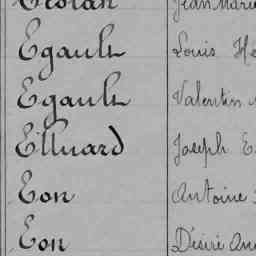 Jean Marie
Egault Louis
Egault Valentin
Elluard Joseph E
Eon Antoine
Eon Désiré